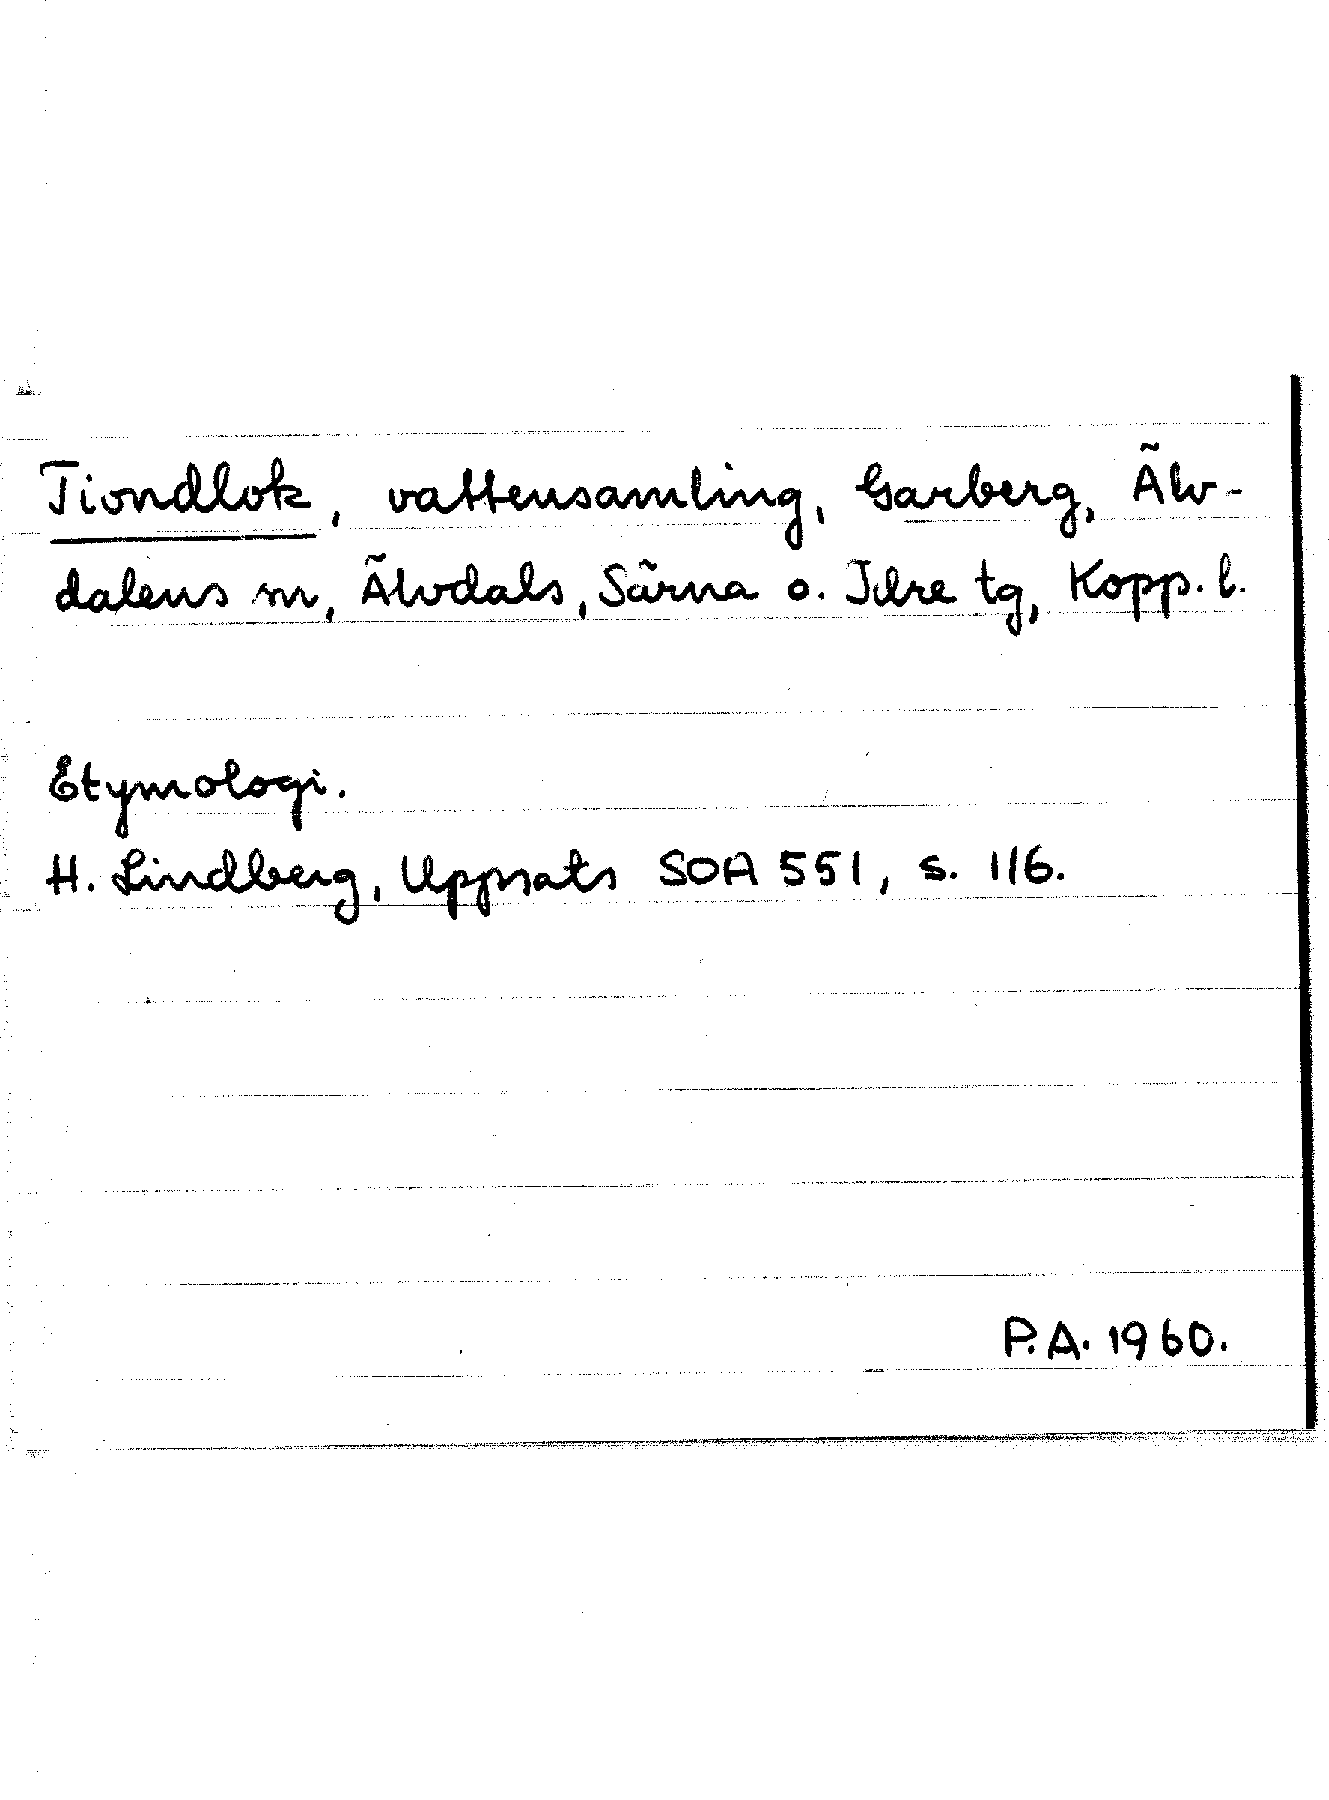 Tiondlok, vattensamling, Garberg, Älv-
dalens sn, Älvdals, Särna o. Idre tg, Kopp. l.
Etymologi.
H. Lindberg, Uppsats SOA 551, s. 116.
P.A. 1960.